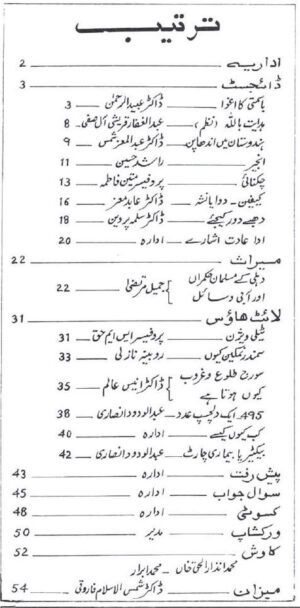 ترتیب
اداریہ 2
ڈائجسٹ 3
باسمتی کا اغوا ڈاکٹر عبیدالرحمٰن 3
ہدایت باللہ (نظم) عبدالغفار قریشی آل صفی 8
ہندوستان میں اندھاپن ڈاکٹر عبدالمعز شمس 9
انجیر راشد حسین 11
چکنائی پروفیسر متین فاطمہ 13
کیفین۔ دوا یا نشہ ڈاکٹر عابد معز 16
دھبے دور کیجئے ڈاکٹر سلمہ پروین 18
ادا عادت اشارے ادارہ 20
میراث 22
دہلی کے مسلمان حکمراں
اور آبی وسائل جمیل مرتضیٰ 22
لائٹ ھاؤس 31
ٹیلی ویژن پروفیسر ایس ایم حق 31
سمندر نمکین کیوں روبینہ نازلی 33
سورج طلوع و غروب
کیوں ہوتا ہے ڈاکٹر انیس عالم 35
495۔ ایک دلچسپ عدد عبدالودود انصاری 38
کب کیوں کیسے ادارہ 40
بیکٹیریا بیماری چارٹ عبدالودود انصاری 42
پیش رفت ادارہ 43
سوال جواب ادارہ 45
کسوٹی ادارہ 48
ورکشاپ مدیر 50
کاوش 52
محمد انذار الحق خاں ۔ محمد ابرار
میزان ڈاکٹر شمس الاسلام فاروقی 54